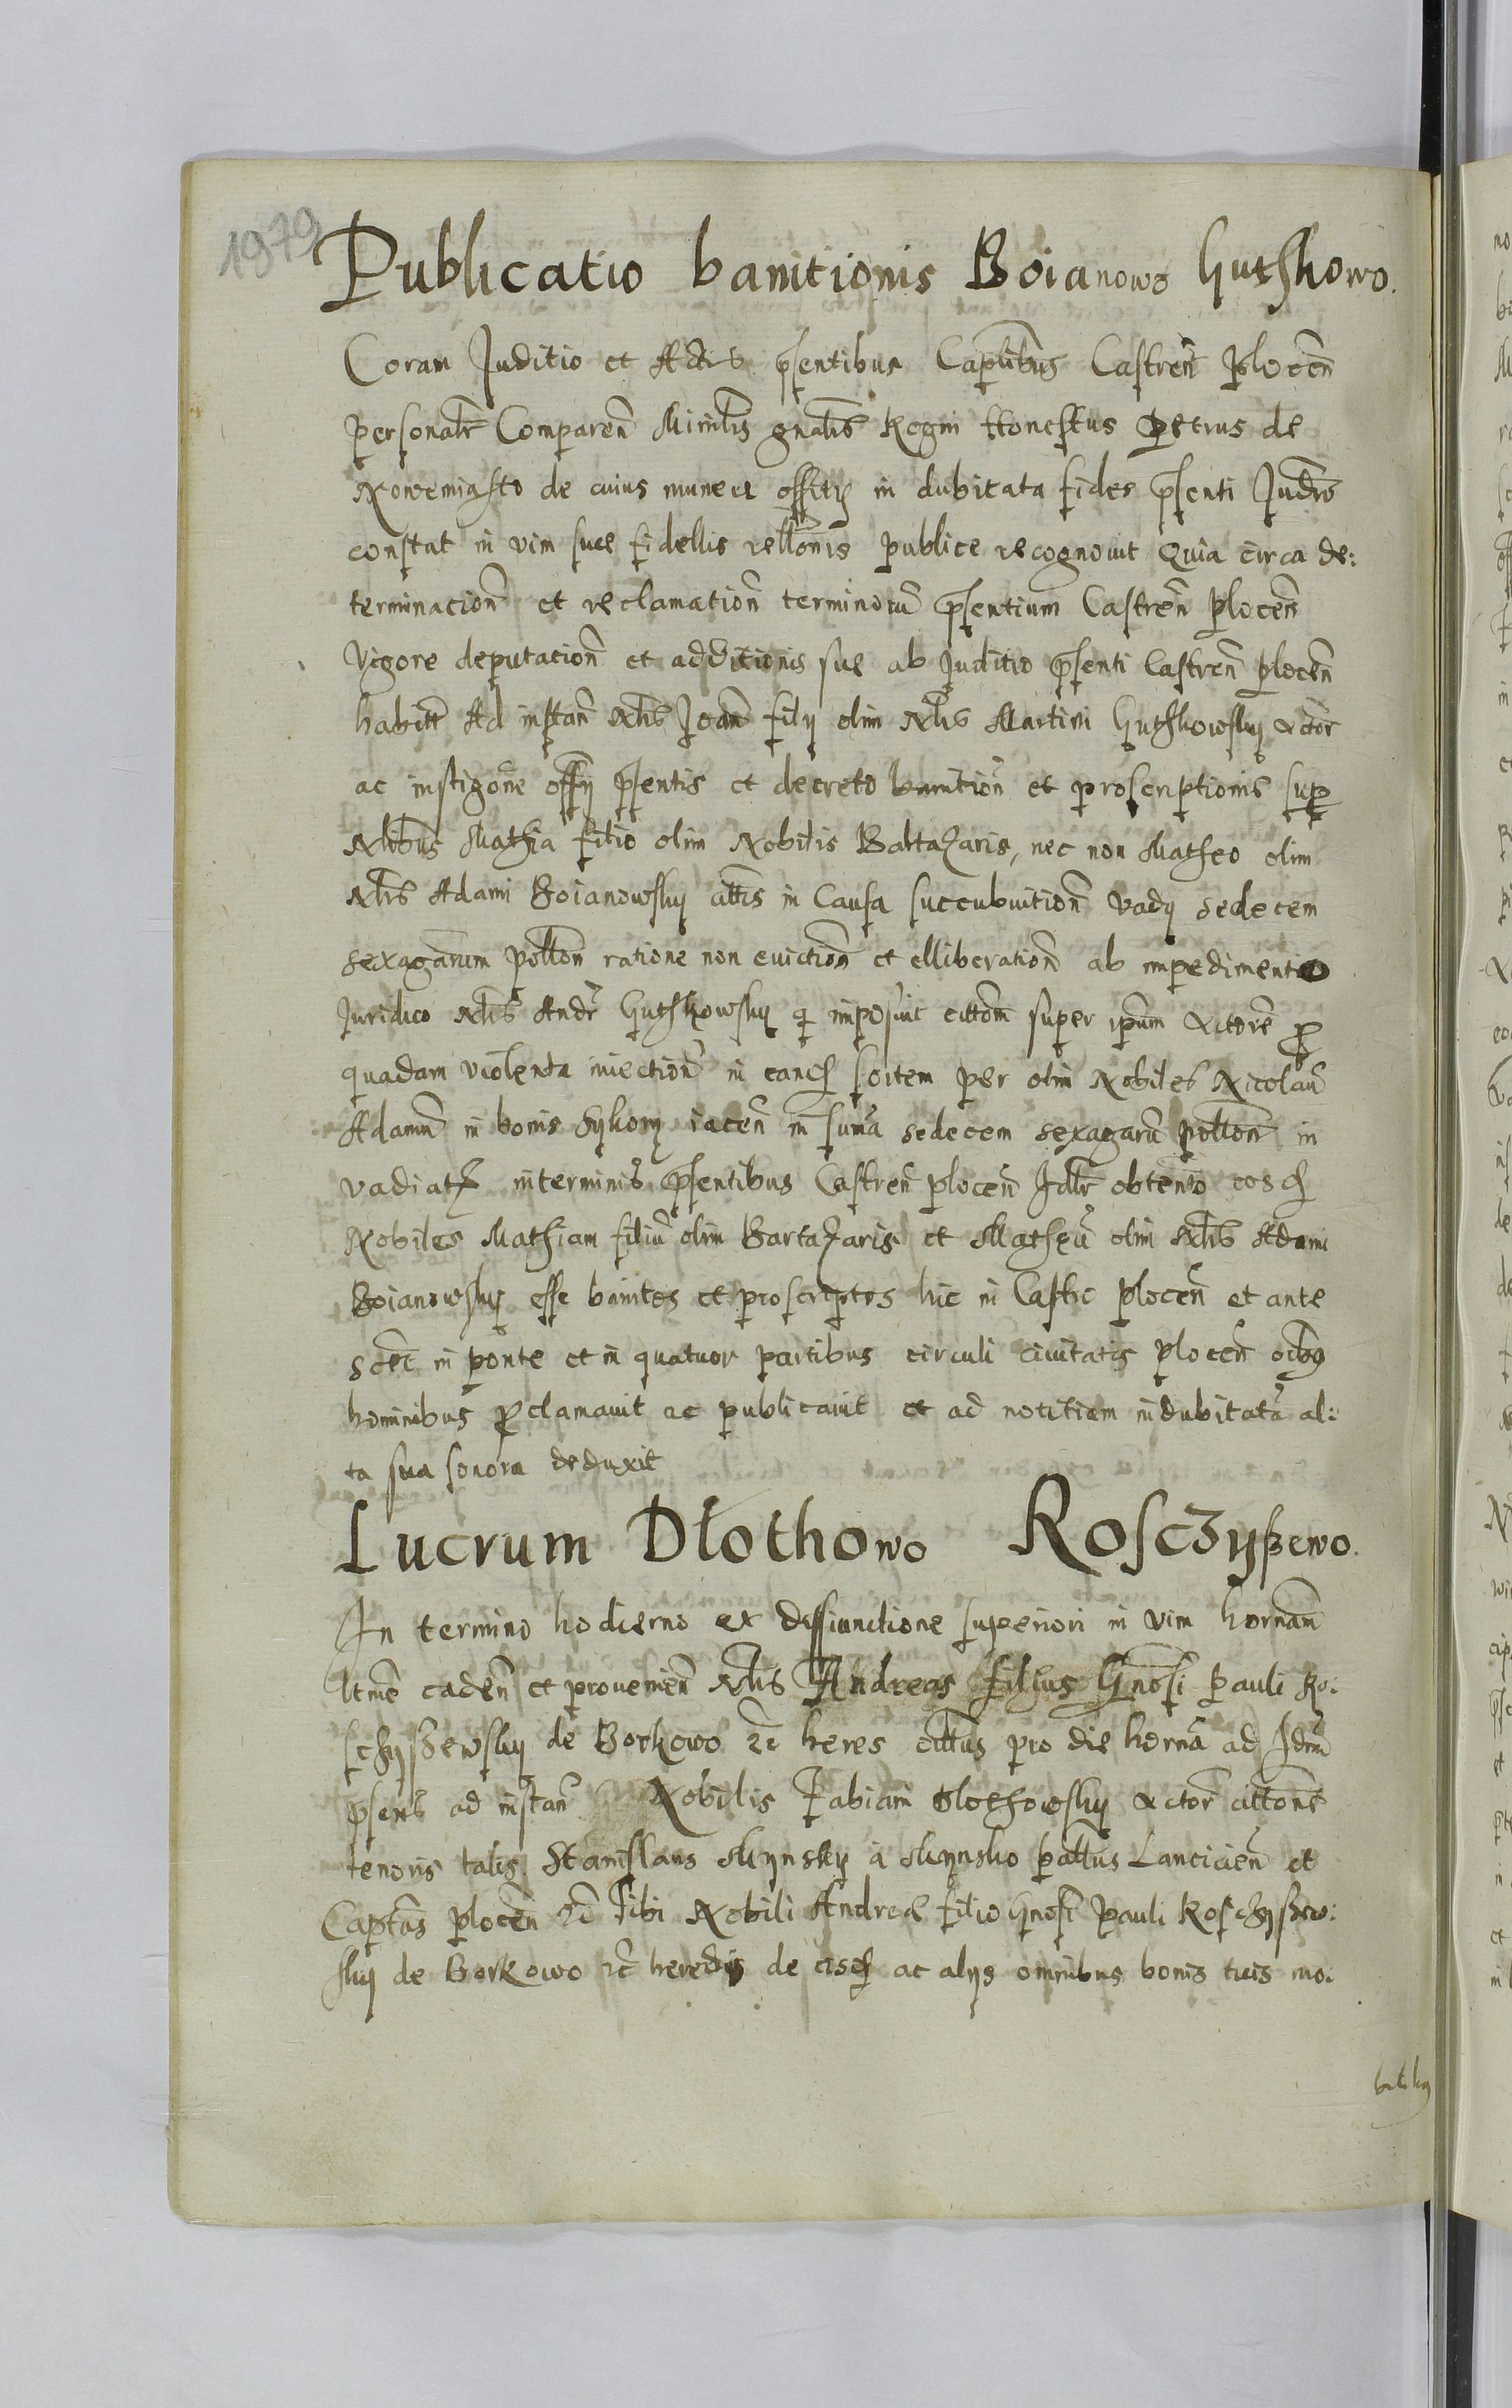 1979
Publicatio banitionis Boianowo Guthkowo.
Coran Juditio et Actis pſentibus Capľibus Caſtreñ Ploceñ
perſonalr̃ Compareñ Miniľris gnalis Regni Honeſtus Petrus de
Nowemiaſto de cuius munere offitij in dubitata fides pſenti Juďio
conſtat in vim ſuae fidellis reľľonis publice recognovit Quia circa de:
terminacioñ et reclamatioñ terminorũ pſentium Caſtreñ Ploceñ
Vigore deputatioñ et additionis ſue ab Juditio pſenti Caſtreñ ploceñ
habitt̃ Ad inſtañ Nľis Joañ filij olim Nľis Martini Guthkowſkij Actor
ac inſtigõne offỹ pſentis et decreto banitioñ et proſcriptionis ſup
Nľibus Mathia filio olim Nobilis Baltazaris, nec non Matheo olim
Nľis Adami Boianowſkij aľľis in Cauſa ſuccubuitioñ vadij sedecem
sexagarum pollõn ratione non euictioñ et elliberatioñ ab impedimento
Juridico Nľis Andr̃ Guthkowſkij q̃ impoſuit cittoñ super ipum Actore pro
quadam violenta iniectioñ in eanq̃ ſortem per olim Nobiles Nicolaũ
Adamũ in bonis Sykorz iaceñ in ſumã sedecem sexagarũ pollõñ in
vadiatꝫ interminis pſentibus Caſtreñ ploceñ Jdlr̃ obtento eosq̃
Nobiles Mathiam filiũ olim Bartazaris et Matheũ olim Nľis Adami
Boianowſkij eſſe banitos et proſcriptos hic in Caſtro ploceñ et ante
in ponte et in quatuor partibus circuli ciuitatis ploceñ oibꝰ
hominibus proclamauit ac publicauit et ad notitiam indubitatã al:
ta sua ſonora deduxit
Lucrum Dłothowo Roſcʒyſzewo.
In termino hodierno ex deſſiunctione ſuperiori in vim hornam̃
ltm̃e cadeñ et proueñieñ Nľis Andreas filius Gnoſi Pauli Ro:
ſchyſzewſkij de Borkowo ꝛc̃ heres cittus pro die hornã ad Jdm̃
pſens ad inſtañ Nobilis Fabiani Dlothowſkij Actor̃ cittone
tenoris talis. Staniſlaus Mijnsky à Mijnsko Pallus Lanciceñ et
Captus̃ ploceñ ꝛc̃ Tibi Nobili Andreae filio Gnoſi Pauli Roſchyſzew:
ſkij de Borkowo ꝛc̃ heredi de eisq̃ ac alijs omnibus bonis tuis mo: